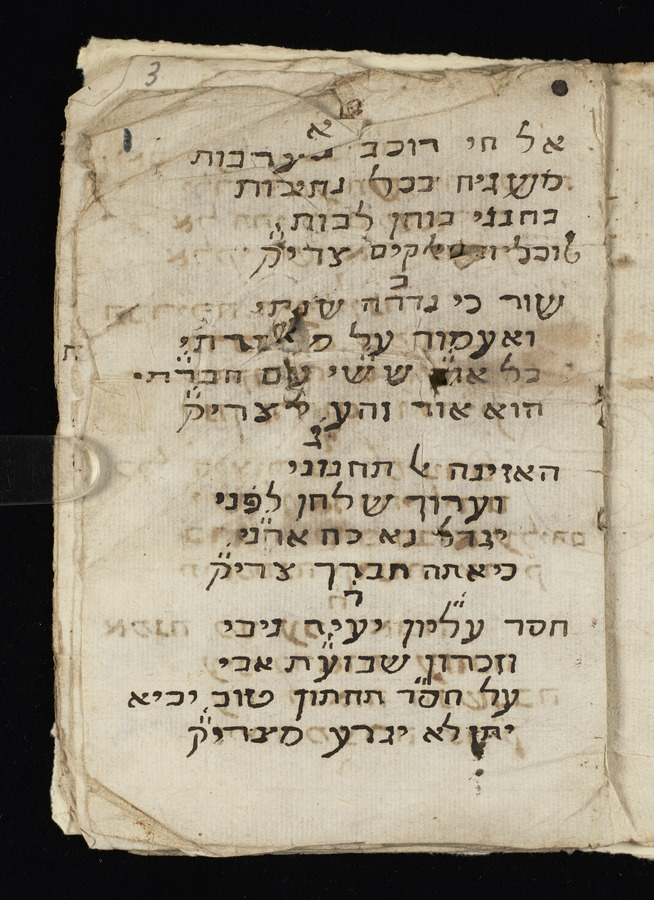 3
א
אל חי רוכב ערבות
משגיח בכל נתיבות
בחנני בוחן לבות
וכליות צדיק
ב
שור כי גדדה שנתי
ואעמוד על משמרתי
כל ששי עם חברתי
הוא אור זרע לצדיק
ג
האזינה אל תחנוני
וערוך שלחן לפני
יגדל נא כח אדני
כי אתה תברך צדיק
ד
חסד עליון יעיר ניבי
וזכרון שבועת אבי
על חסד תחתון טוב יביא
יתן לא יגרע מצדיק